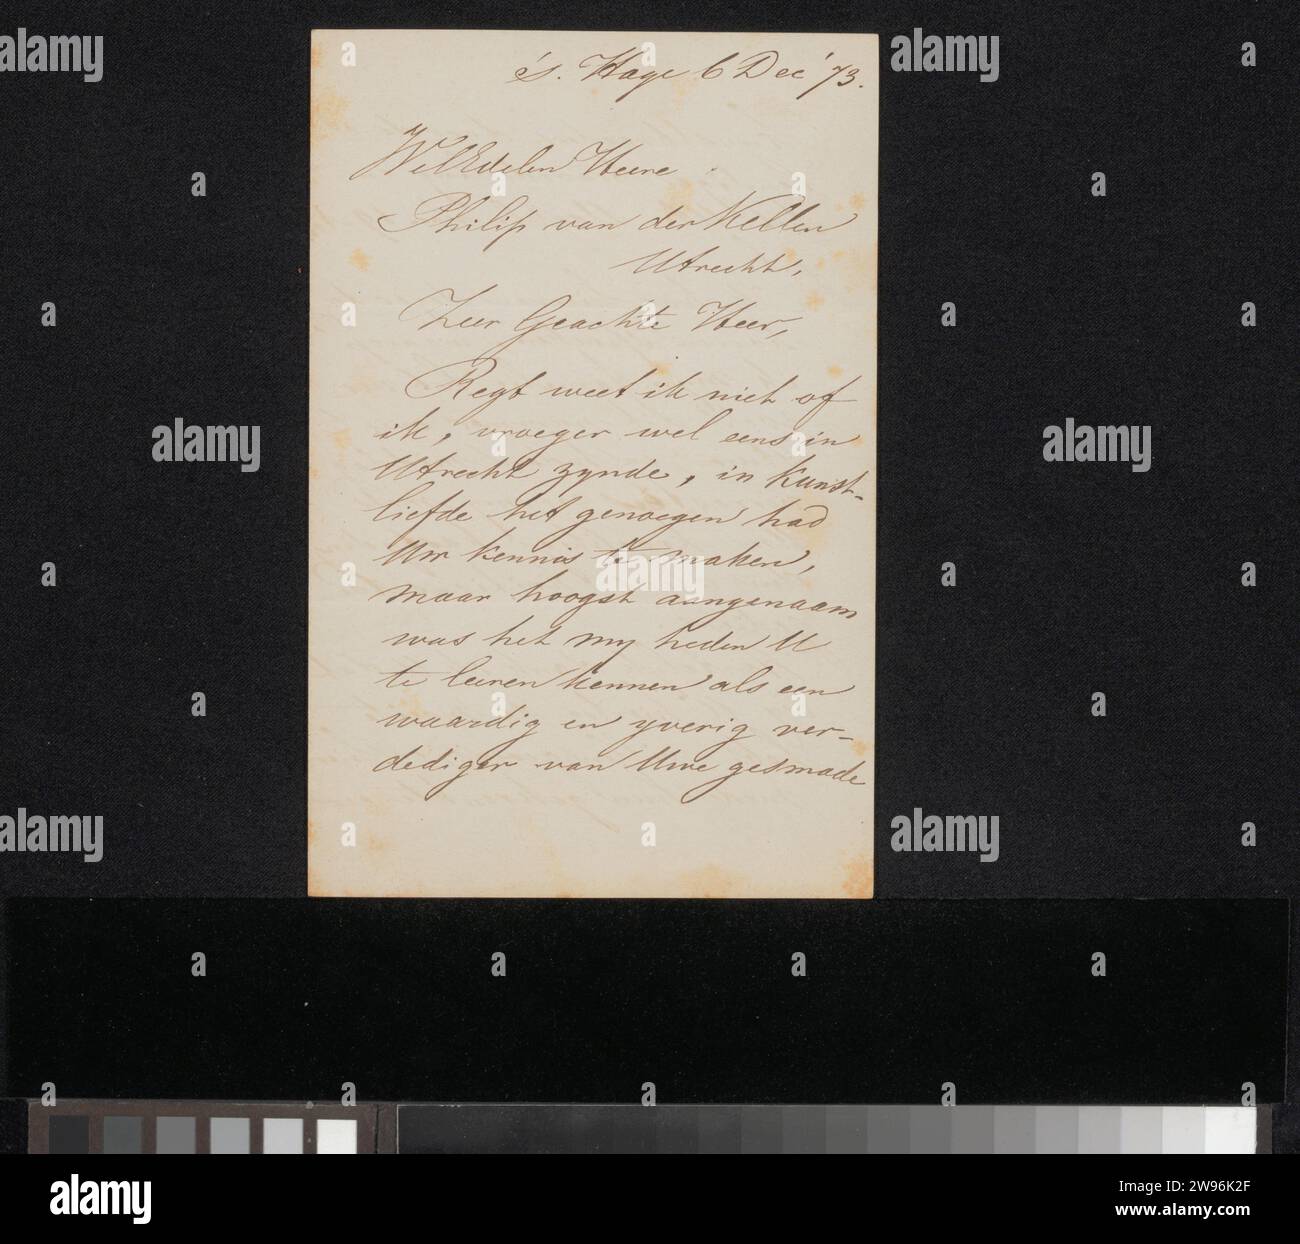 's. Hage 6 Dec '73.
WelEdelen Heere
Philip van der Kellen
Utrecht,
Zeer Geachte Heer,
Regt weet ik niet of
ik, vroeger wel eens in
Utrecht zynde, in Kunst-
liefde het genoegen had
Uw kennis te maken,
maar hoogst aangenaam
was het my heden U
te leeren kennen als een
waardig en yverig ver-
dediger van Uwe gesmade
alamy
Image ID: 2W96K2F
www.alamy.com